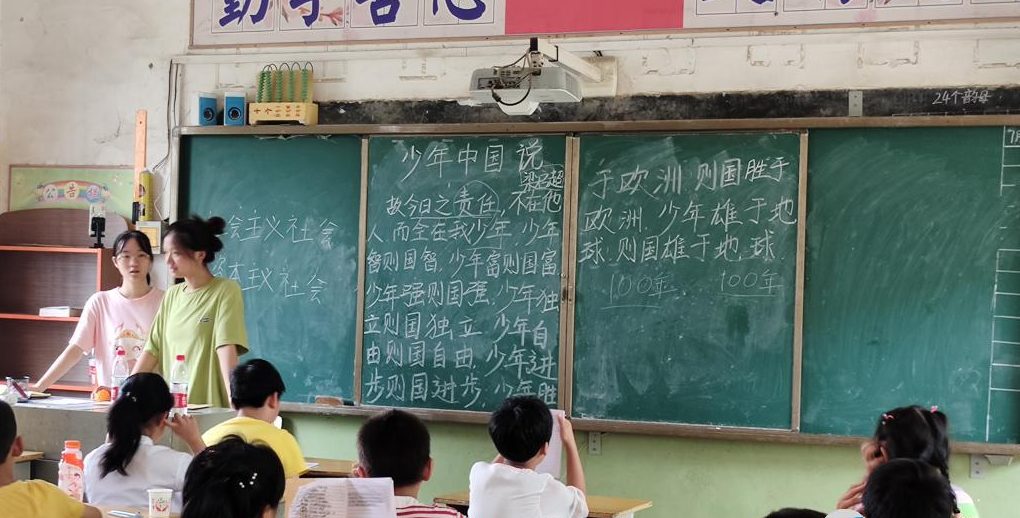 勤学善思
24个韵母
公告栏
会主义社会
本主义社会
少年中国说
梁启超
故今日之责任,不在他
人,而全在我少年,少年
智则国智,少年富则国富,
少年强则国强,少年独
立则国独立,少年自
由则国自由,少年进
步则国进步,少年胜
于欧洲,则国胜于
欧洲,少年雄于地
球,则国雄于地球.
100年 100年